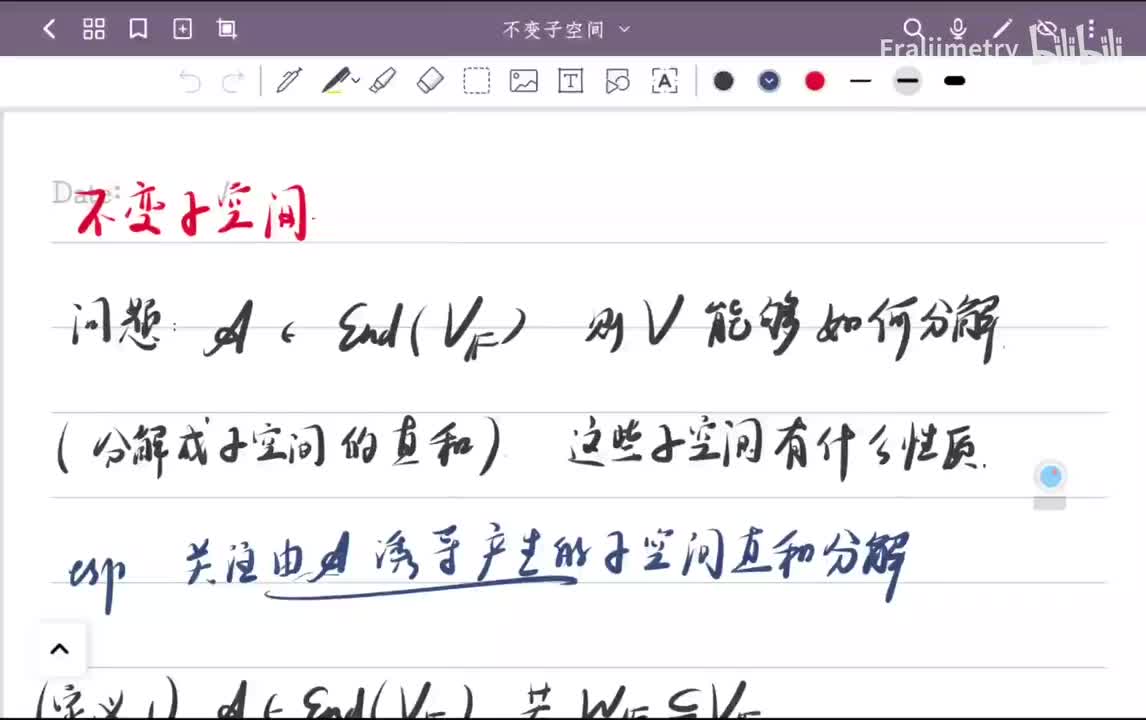 不变子空间
Eraliimetry bilibili
Date:
不变子空间.
问题: 𝒜 ∈ End(V_𝔽) 则 V 能够如何分解.
(分解成子空间的直和) 这些子空间有什么性质.
esp 关注由𝒜诱导产生的子空间直和分解
(定义1) 𝒜 ∈ End(V_𝔽) 若 W_𝔽 ⊆ V_𝔽